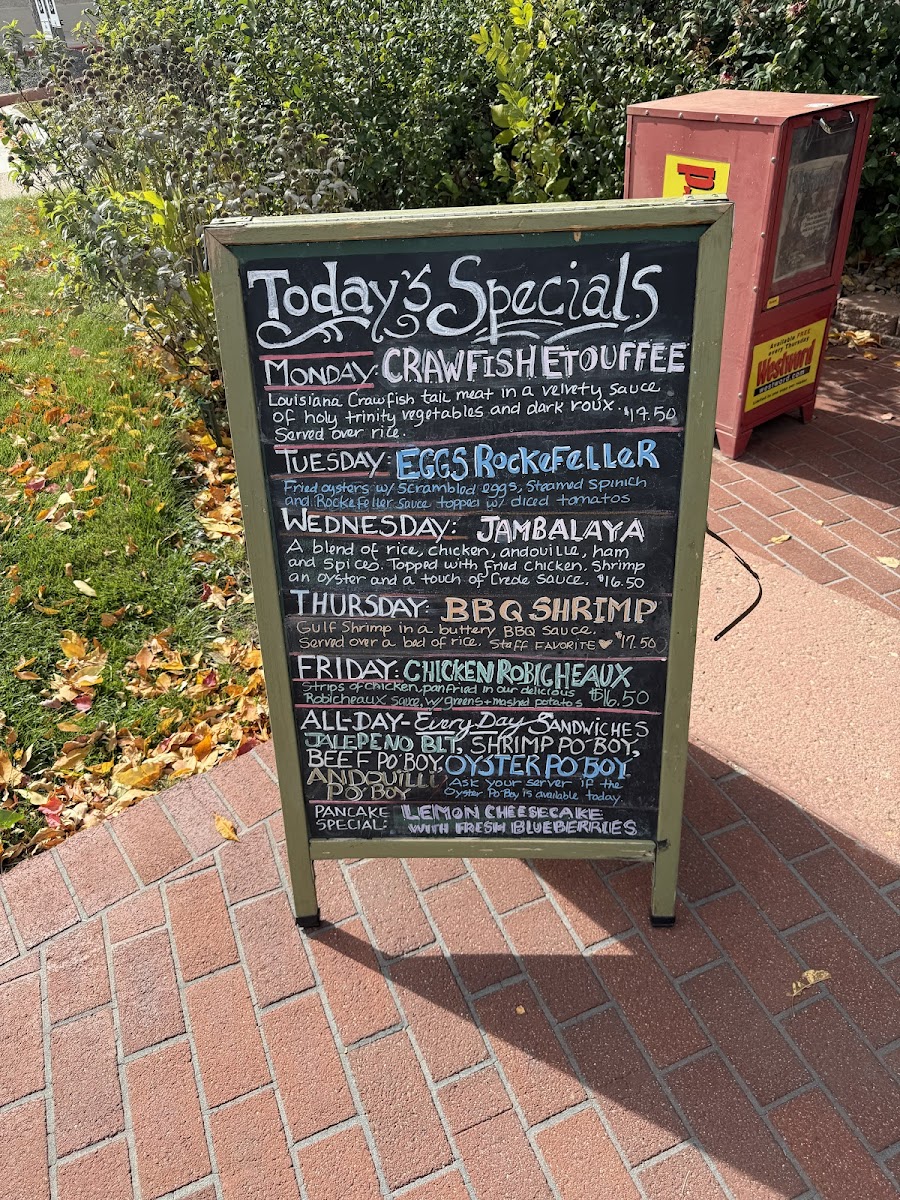 Today's Specials
MONDAY: CRAWFISH ETOUFFEE
Louisiana Crawfish tail meat in a velvety sauce
of holy trinity vegetables and dark roux. $17.50
Served over rice.
TUESDAY: EGGS ROCKEFELLER
Fried oysters w/ scrambled eggs, steamed spinich
and Rockefeller sauce topped w/ diced tomatos
WEDNESDAY: JAMBALAYA
A blend of rice, chicken, andouille, ham
and spices. Topped with fried chicken. Shrimp
an oyster and a touch of Creole sauce. $16.50
THURSDAY: BBQ SHRIMP
Gulf Shrimp in a buttery BBQ sauce.
Served over a bed of rice. STAFF FAVORITE ♥ $17.50
FRIDAY: CHICKEN ROBICHEAUX
Strips of chicken panfried in our delicious
Robicheaux sauce, w/ greens + mashed potatos $16.50
ALL-DAY- Every Day SANDWICHES
JALEPENO BLT, SHRIMP PO'BOY,
BEEF PO'BOY, OYSTER PO'BOY
ANDOUILLE PO'BOY
Ask your server if the
Oyster Po'Boy is available today.
PANCAKE SPECIAL: LEMON CHEESECAKE
WITH FRESH BLUEBERRIES
Available FREE
every Thursday
Westword
westword.com